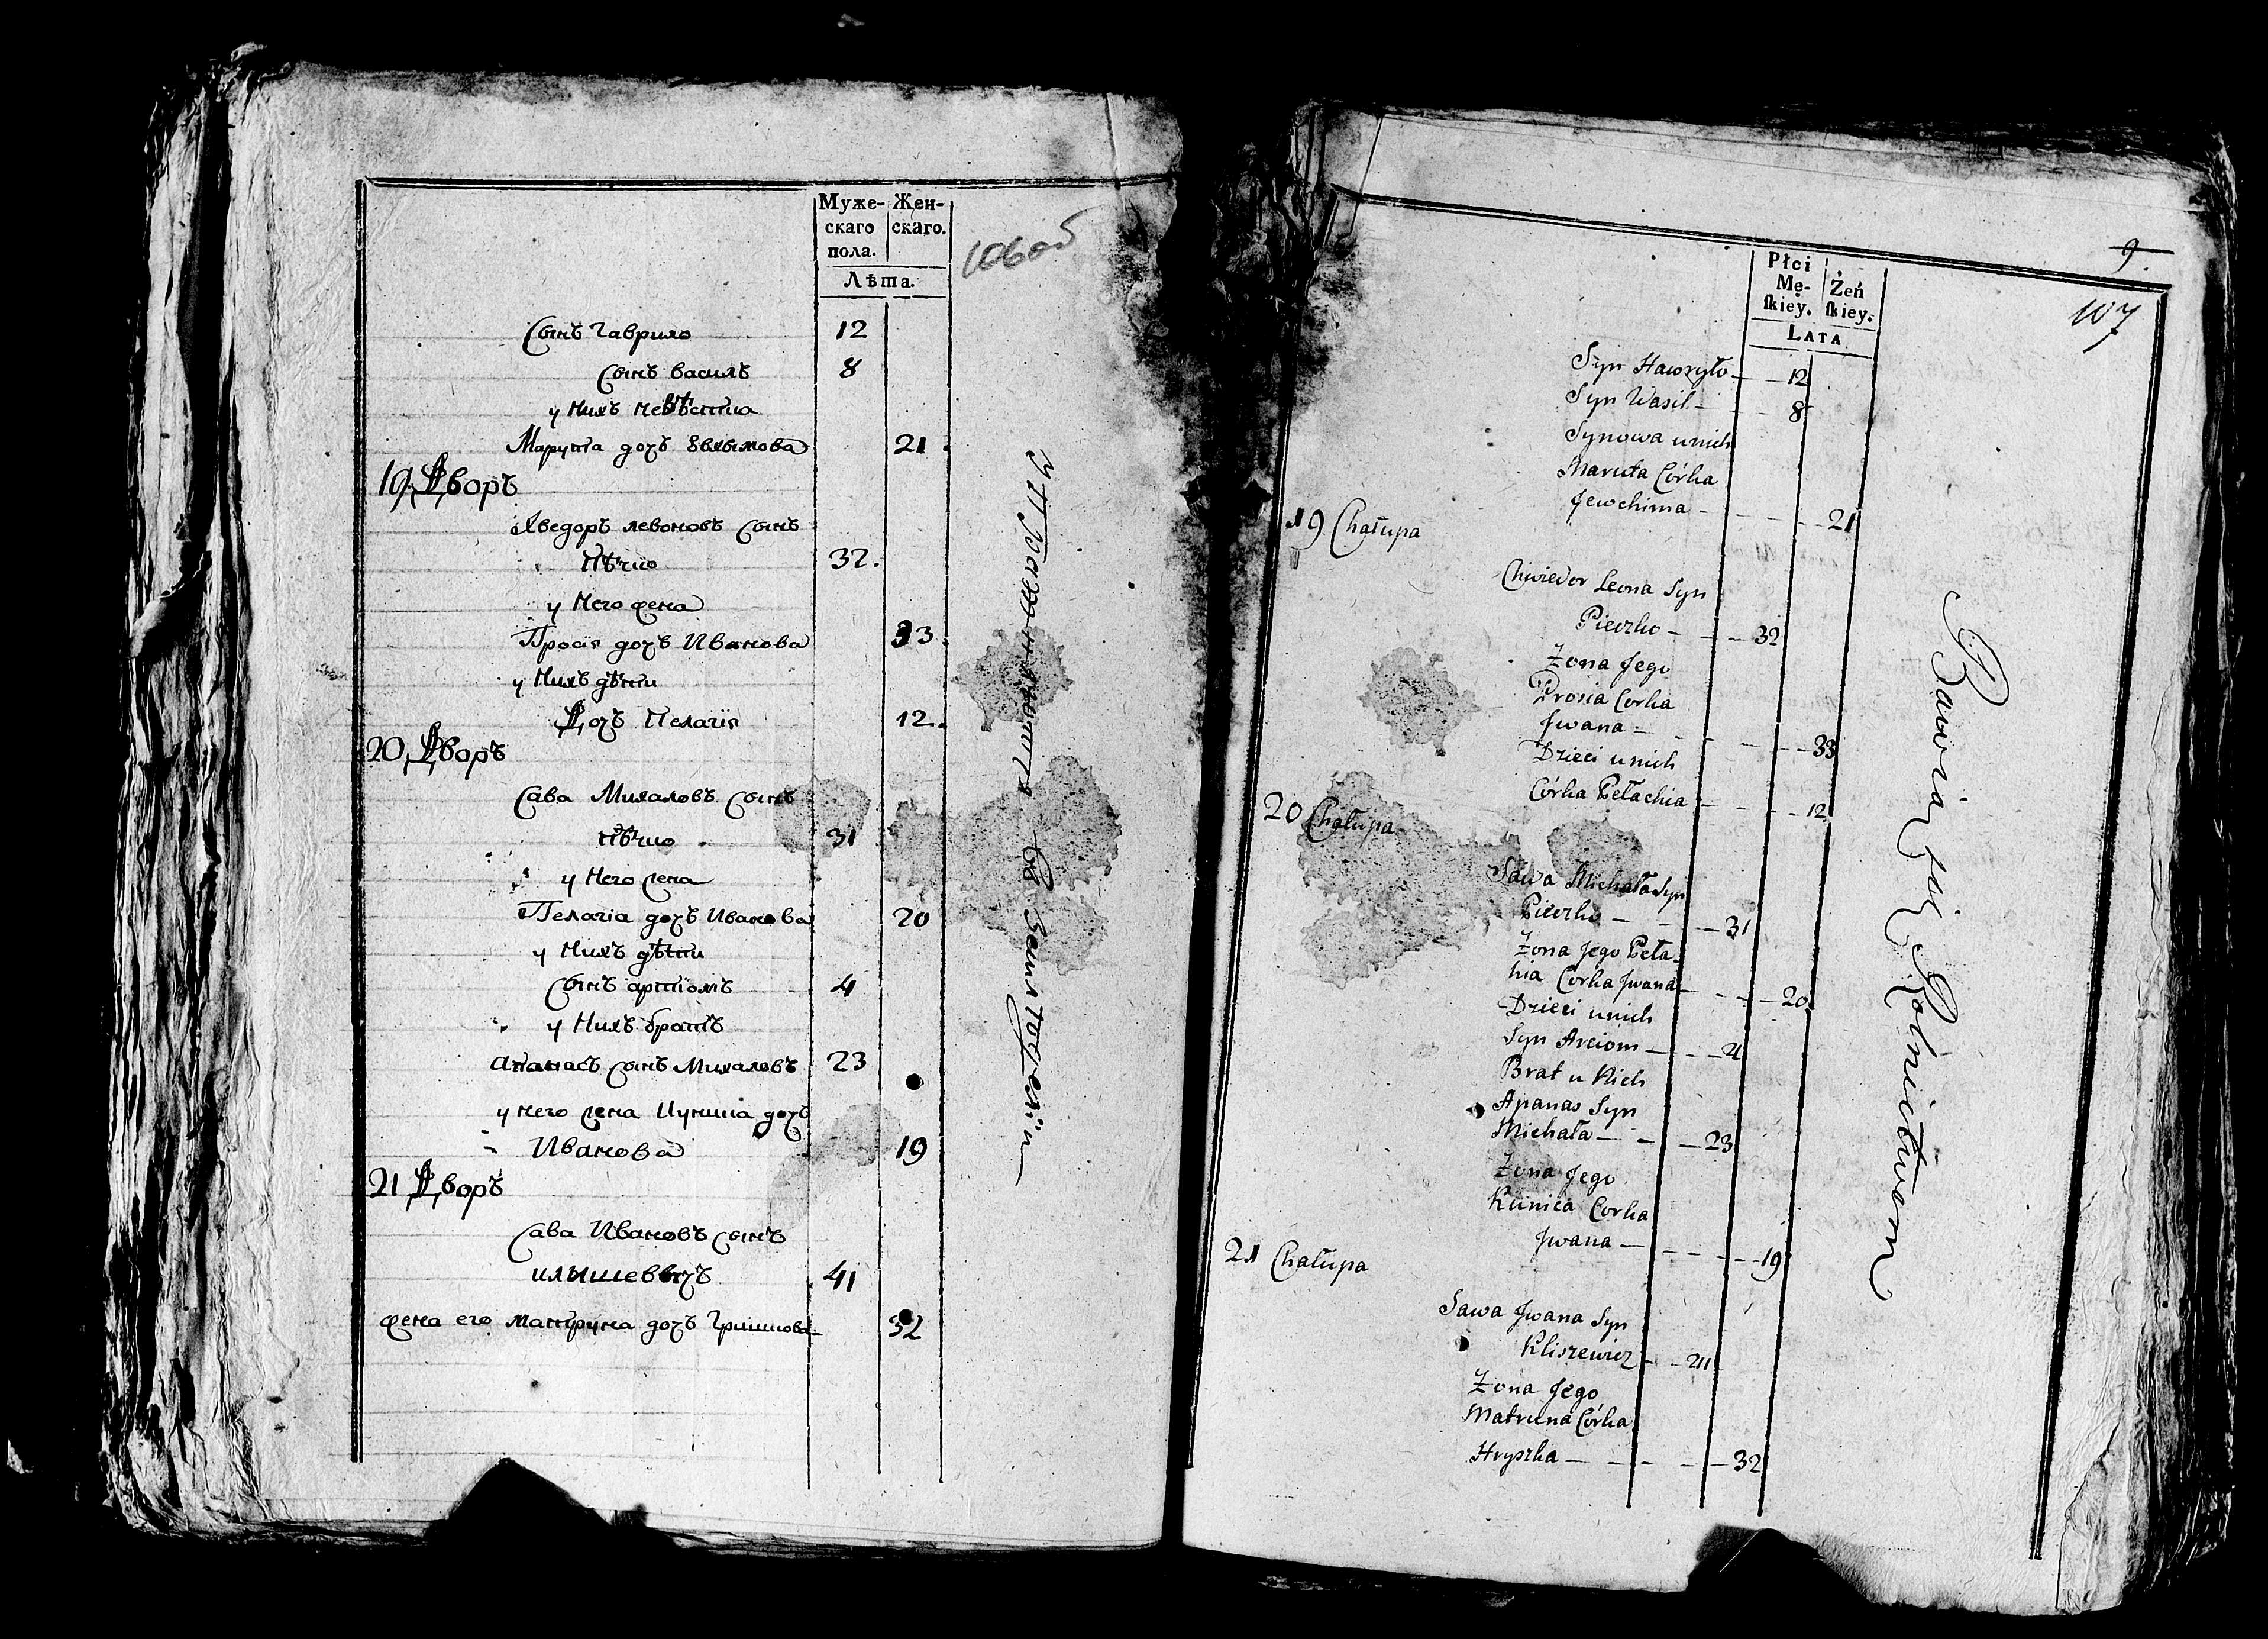 Муже-
скаго
пола.
Жен-
скаго.
Лѣта.
106об
Сынъ Гаврило 12
Сынъ Василъ 8
у Нихъ Невѣстка
Марута дочъ Евхымова 21
19 Дворъ
Хведоръ Левоновъ Сынъ
32
у Него жена
Прося дочъ Иванова 33
у Нихъ дѣти
Дочъ Пелагія 12
20 Дворъ
Сава Михаловъ Сынъ
31
у Него жена
Пелагіа дочъ Иванова 20
у Нихъ дѣти
Сынъ артіомъ 4
у Нихъ братъ
Апанасъ Сынъ Михаловъ 23
у него жена дочъ
Иванова 19
21 Дворъ
Сава Ивановъ Сынъ
41
жена его Матруна дочъ Гришкова 32
Упражняются въ Земледелии
9.
107
Płci
Mę-
ſkiey.
Żeń
ſkiey.
LATA
Syn Hawryło 12
Syn Wasil 8
Synowa u nich
Maruta Córka
Jewchima 21
19 Chałupa
Chwiedor Leona Syn
Pieczko 32
Żona Jego
Prosia Corka
Jwana 33
Dzieci u nich
Córka Pełachia 12
20 Chałupa
Sawa Michała Syn
Pieczko 31
Żona Jego Peła-
hia Corka Jwana 20
Dzieci u nich
Syn Arciom 4
Brat u Nich
Apanas Syn
Michała 23
Żona Jego
Kunica Corka
Jwana 19
21 Chałupa
Sawa Jwana Syn
Kliszewicz 41
Żona Jego
Matruna Córka
Hryszka 32
Bawią się Rolnictwem